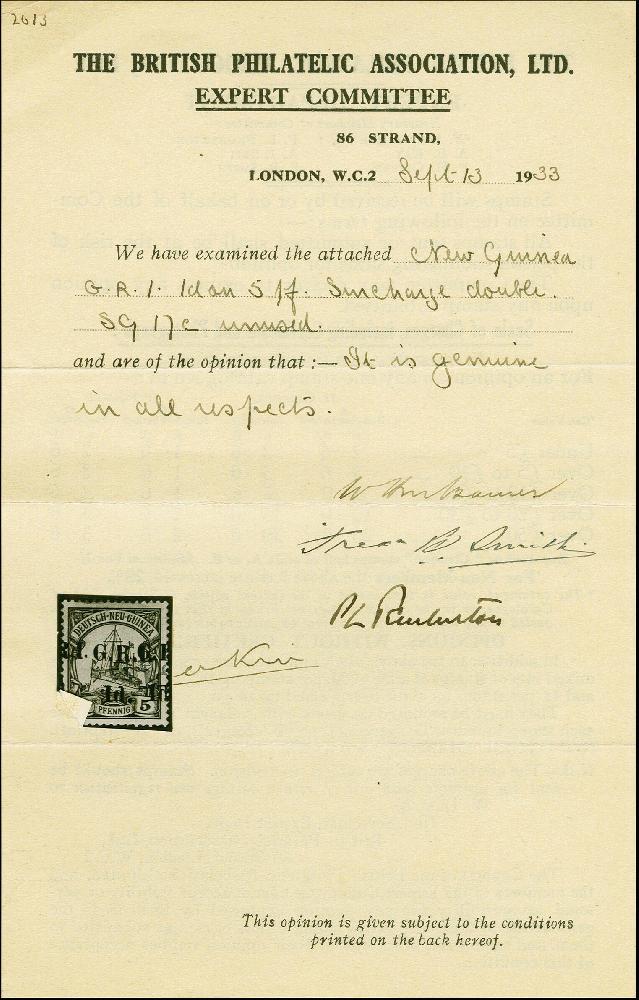 2613
THE BRITISH PHILATELIC ASSOCIATION, LTD.
EXPERT COMMITTEE
86 STRAND,
LONDON, W.C.2 Sept 13 1933
We have examined the attached New Guinea
G.R.I. 1d on 5 pf. Surcharge double.
SG 17c unused.
and are of the opinion that :— It is genuine
in all respects.
Fredk B. Smith
P L Pemberton
DEUTSCH-NEU-GUINEA
G.R.
1d.
PFENNIG 5
This opinion is given subject to the conditions
printed on the back hereof.